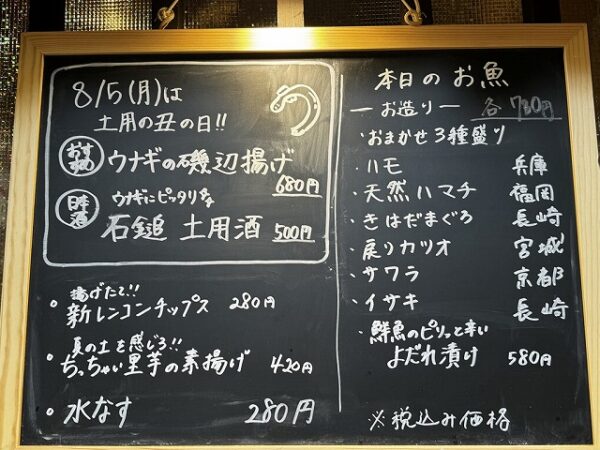 8/5(月)は
土用の丑の日!!
おすすめ ウナギの磯辺揚げ
680円
日本酒 ウナギにピッタリな
石鎚 土用酒 500円
揚げたて!!
・新レンコンチップス 280円
夏の土を感じろ!!
・ちっちゃい里芋の素揚げ 420円
・水なす 280円
本日のお魚
ーお造りー 各 780円
・おまかせ3種盛り
・ハモ 兵庫
・天然ハマチ 福岡
・きはだまぐろ 長崎
・戻りカツオ 宮城
・サワラ 京都
・イサキ 長崎
・鮮魚のピリッと辛い
よだれ漬け 580円
※税込み価格